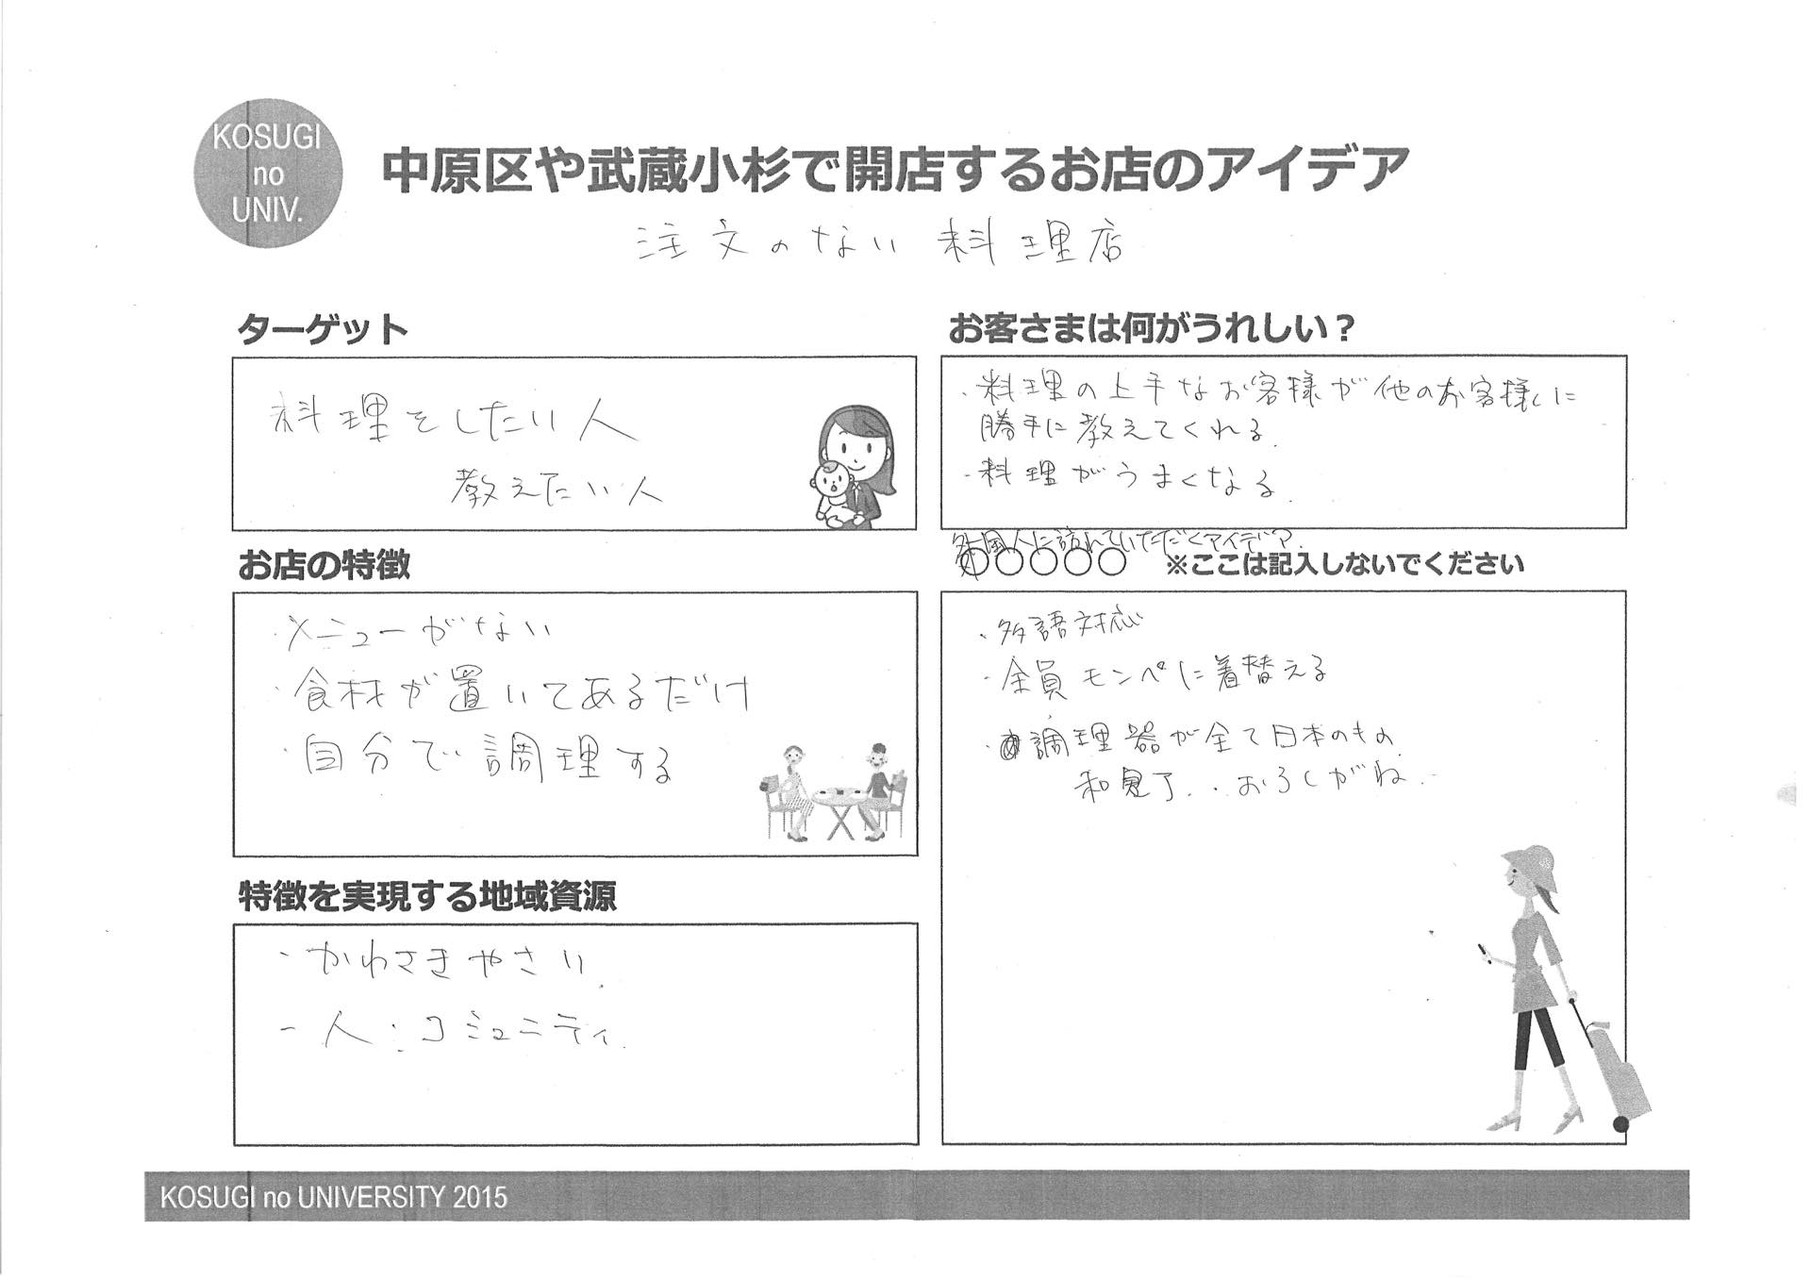 KOSUGI
no
UNIV.
中原区や武蔵小杉で開店するお店のアイデア
注文のない 料理店
ターゲット
料理をしたい人
教えたい人
お店の特徴
・メニューがない
・食材が置いてあるだけ
・自分で調理する
特徴を実現する地域資源
・かわさきやさい.
- 人:コミュニティ.
お客さまは何がうれしい?
・料理の上手なお客様が他のお客様に
勝手に教えてくれる.
・料理がうまくなる.
外国人に訪れていただくアイデア.
○○○○○ ※ここは記入しないでください
・多語対応
・全員モンペに着替える
・調理器が全て日本のもの.
おろしがね..
KOSUGI no UNIVERSITY 2015